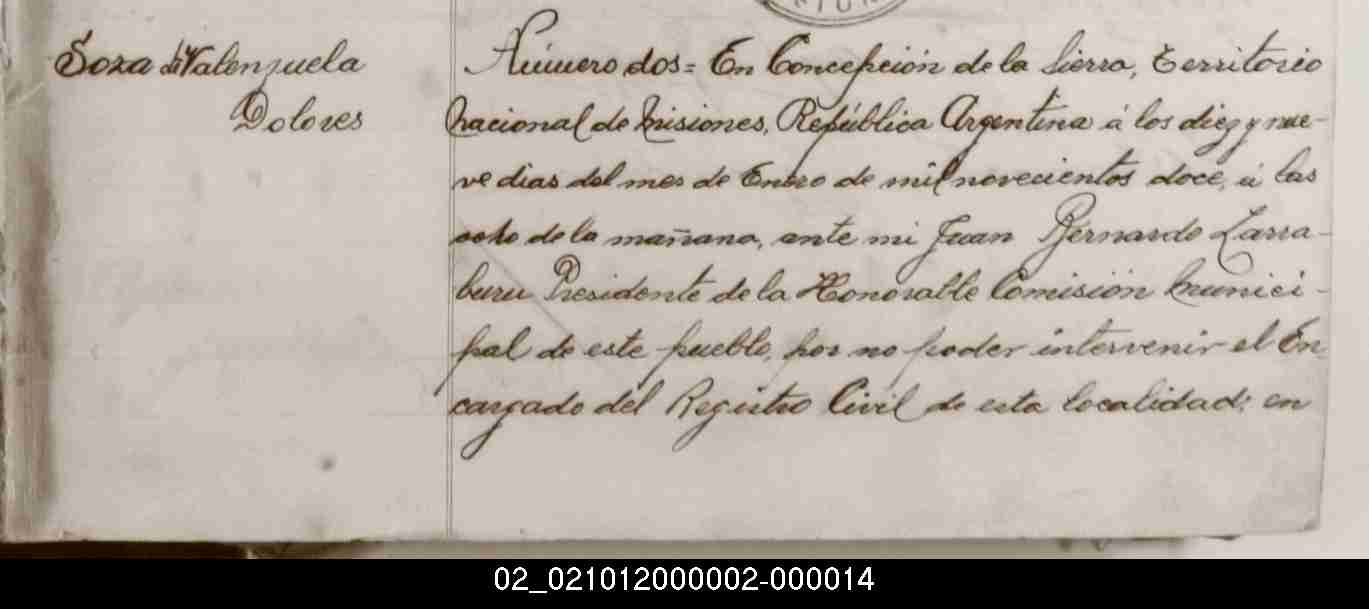 Soza de Valenzuela
Dolores
Número dos = En Concepción de la Sierra, Territorio
Nacional de Misiones, República Argentina á los diez y nue-
ve dias del mes de Enero de mil novecientos doce, á las
ocho de la mañana, ante mi Juan Bernardo Larra-
buru Presidente de la Honorable Comisión Munici-
pal de este pueblo, por no poder intervenir el En-
cargado del Registro Civil de esta localidad; en
02_021012000002-000014